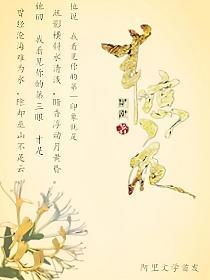 他说 我看见你的第一印象就是
疏影横斜水清浅，暗香浮动月黄昏
他回 我看见你的第三眼 才是
曾经沧海难为水，除却巫山不是云
阿里文学首发